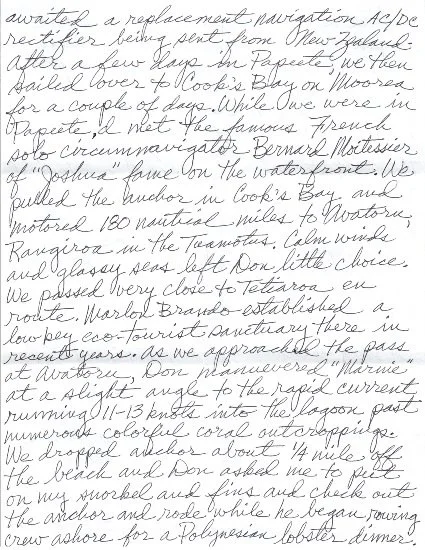 awaited a replacement navigation AC/DC
rectifier being sent from New Zealand.
After a few days in Papeete, we then
sailed over to Cook's Bay on Moorea
for a couple of days. While we were in
Papeete, I met the famous French
solo circumnavigator Bernard Moitessier
of "Joshua" fame on the waterfront. We
pulled the anchor in Cook's Bay and
motored 180 nautical miles to Avatoru,
Rangiroa in the Tuamotus. Calm winds
and glassy seas left Don little choice.
We passed very close to Tetiaroa en
route. Marlon Brando established a
low key eco-tourist sanctuary there in
recent years. As we approached the pass
at Avatoru, Don manuevered "Marnie"
at a slight angle to the rapid current
running 11-13 knots into the lagoon past
numerous colorful coral outcroppings.
We dropped anchor about 1/4 mile off
the beach and Don asked me to put
on my snorkel and fins and check out
the anchor and rode while he began rowing
crew ashore for a Polynesian lobster dinner.